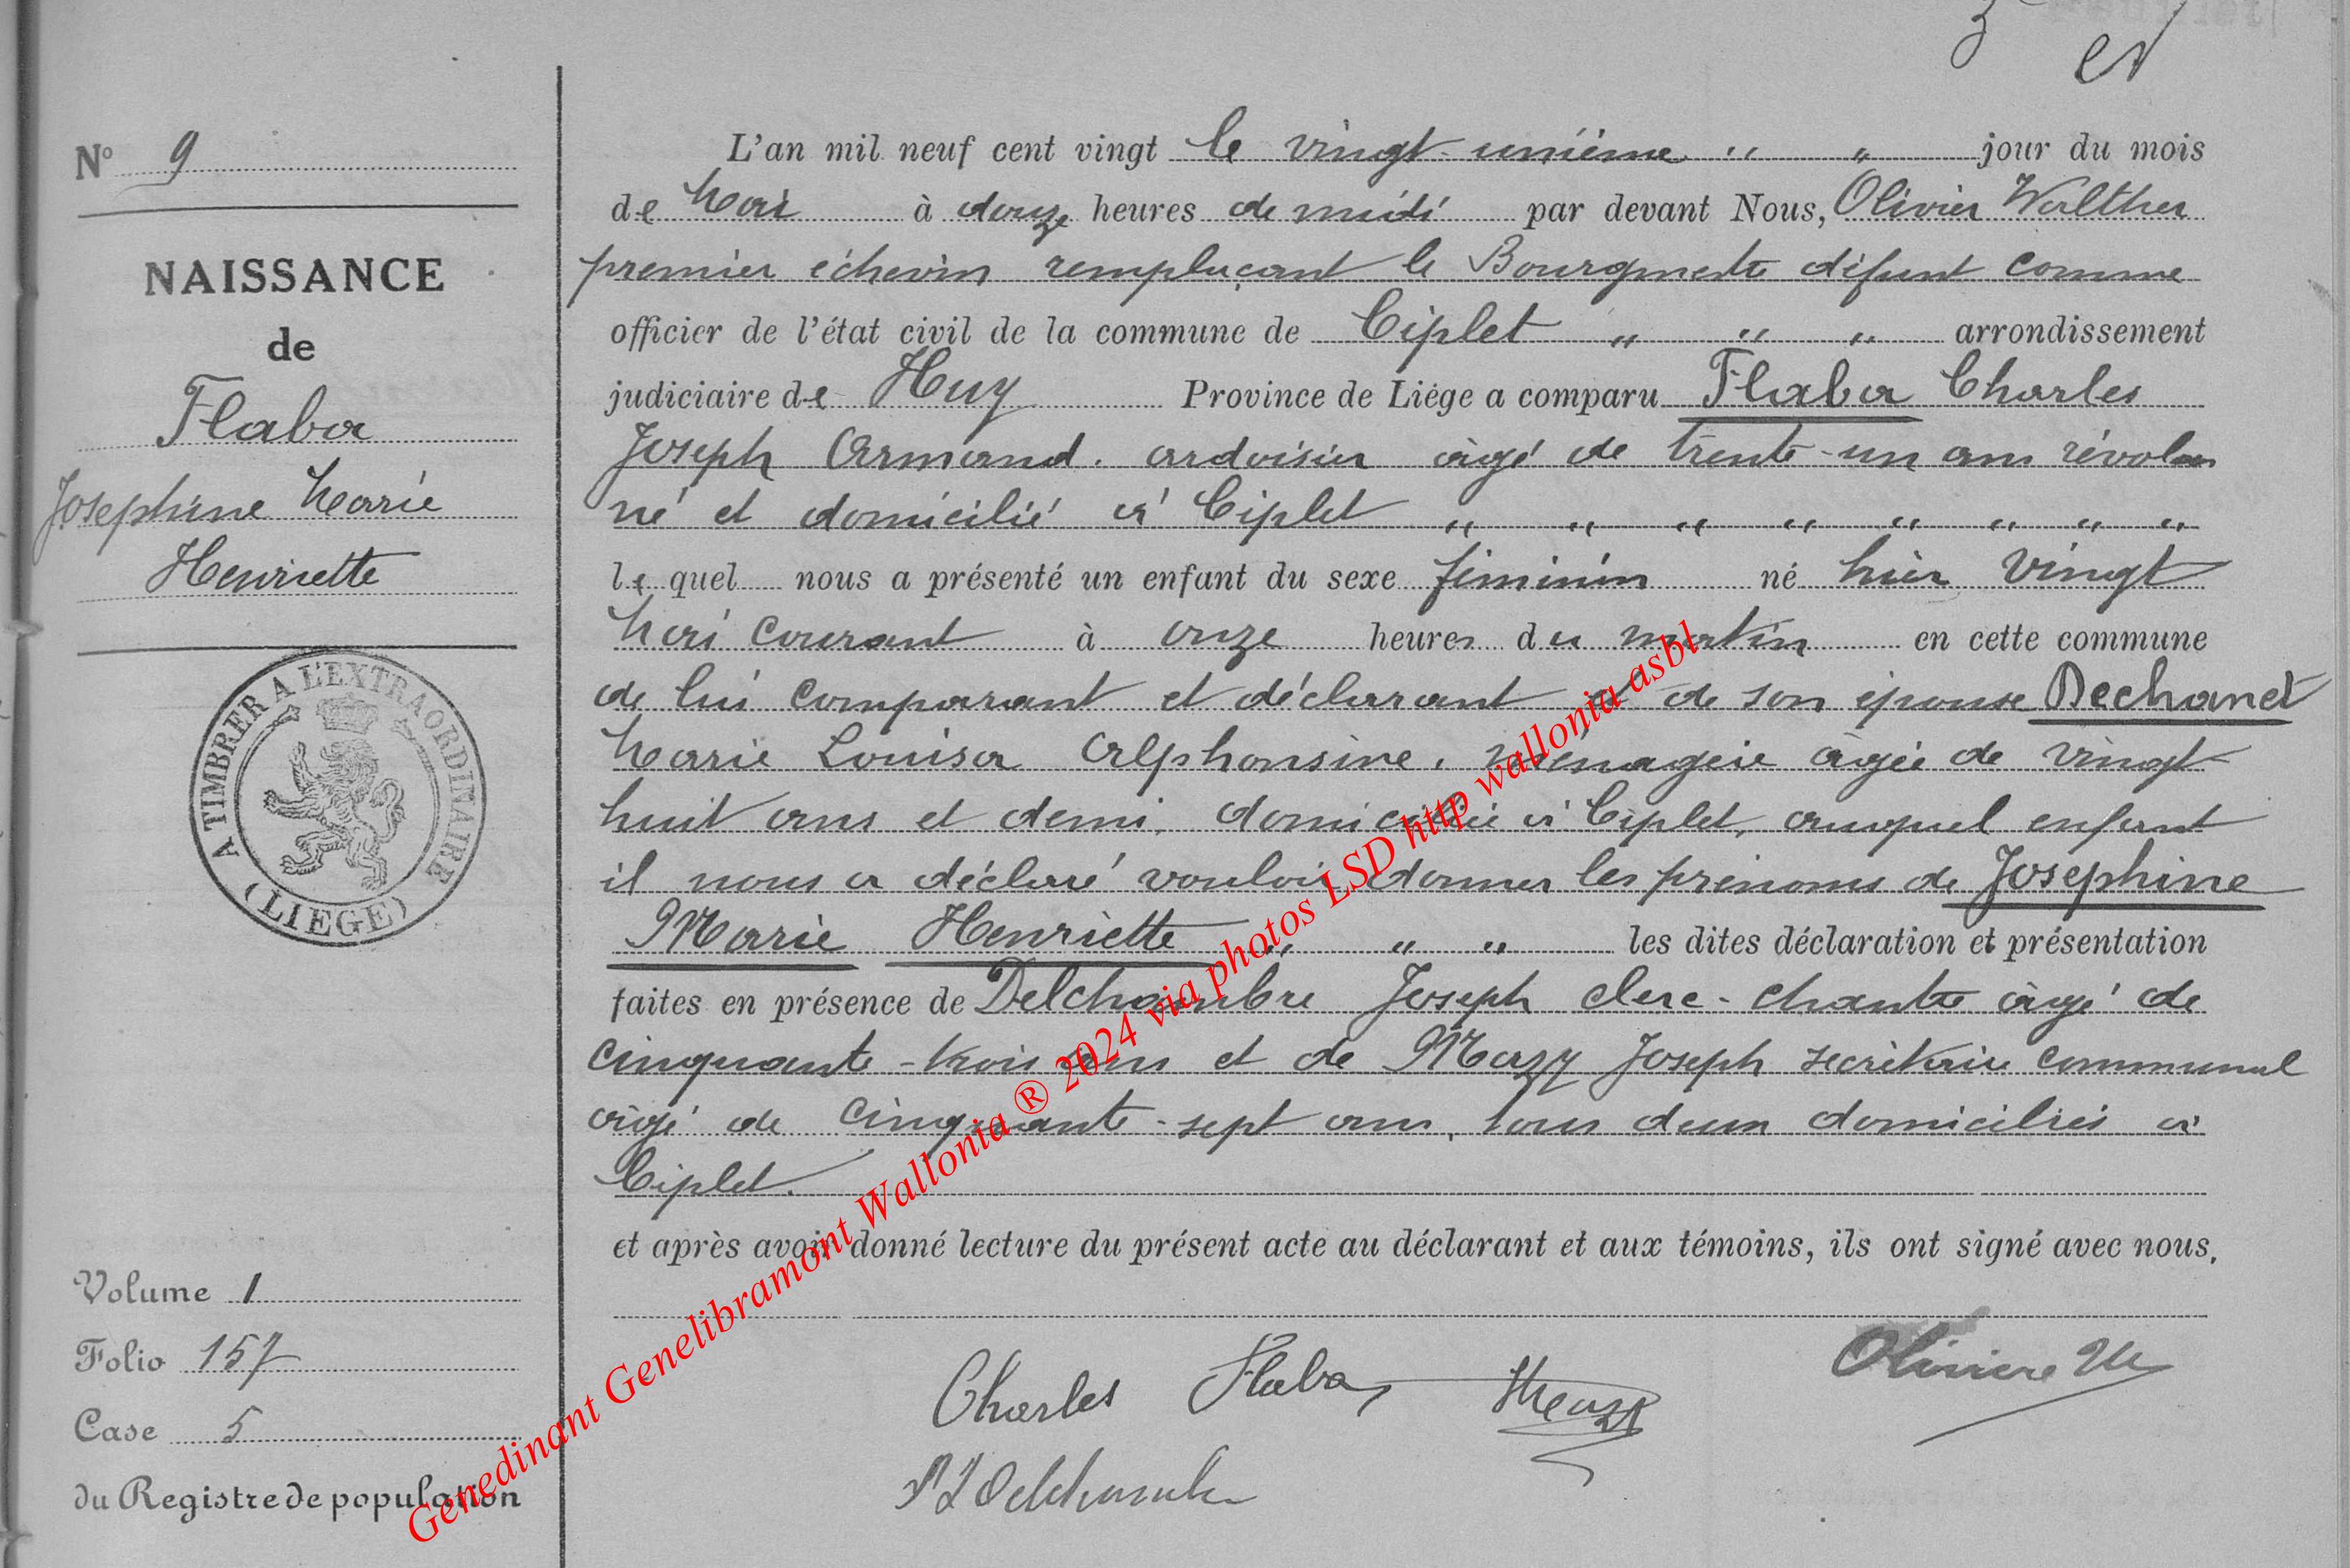 N° 9
NAISSANCE
de
Flaba
Josephine Marie
Henriette
A TIMBRER A L'EXTRAORDINAIRE
(LIEGE)
Volume 1
Folio 157
Case 5
du Registre de population
L'an mil neuf cent vingt le vingt-unième " " jour du mois
de Mai à douze heures de midi par devant Nous, Olivier Walther
premier échevin remplaçant le Bourgmestre défunt comme
officier de l'état civil de la commune de Ciplet " " " arrondissement
judiciaire de Huy Province de Liége a comparu Flaba Charles
Joseph Armand. ardoisier âgé de trente-un ans révolus
né et domicilié à Ciplet " " " " " " " "
le quel nous a présenté un enfant du sexe féminin né hier vingt
Mai courant à onze heures du matin en cette commune
de lui comparant et déclarant et de son épouse Dechanet
Marie Louisa Alphonsine, ménagère âgée de vingt
huit ans et demi, domiciliée à Ciplet, auquel enfant
il nous a déclaré vouloir donner les prénoms de Josephine
Marie Henriette " " " les dites déclaration et présentation
faites en présence de Delchambre Joseph clerc-chantre âgé de
cinquante-trois ans et de Mazy Joseph secrétaire communal
âgé de cinquante-sept ans, tous deux domiciliés à
Ciplet.
et après avoir donné lecture du présent acte au déclarant et aux témoins, ils ont signé avec nous.
Charles Flaba JMazy Oliviere W
J Delchambre
Genedinant Genelibramont Wallonia ® 2024 via photos LSD http wallonia asbl